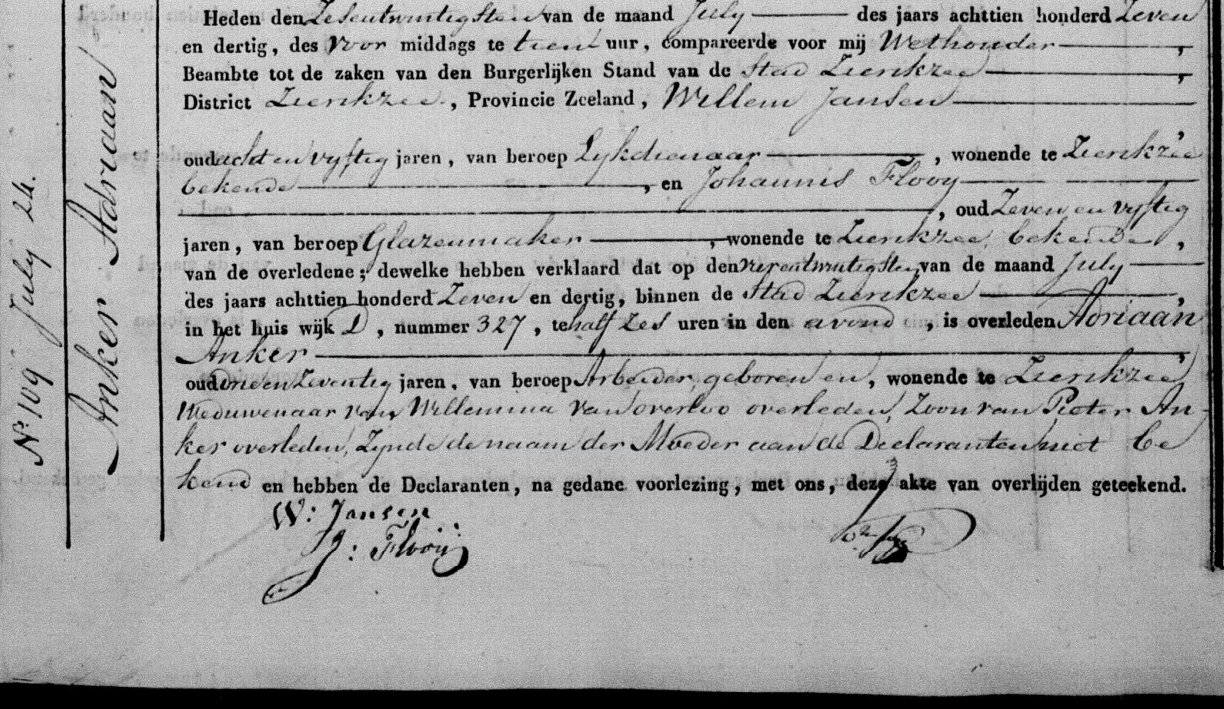 Heden den Zesentwintigsten van de maand July des jaars achttien honderd Zeven
en dertig, des Voor middags te tien uur, compareerde voor mij Wethouder,
Beambte tot de zaken van den Burgerlijken Stand van de Stad Zierikzee,
District Zierikzee, Provincie Zeeland, Willem Jansen
oud acht en vyftig jaren, van beroep Lykdienaar, wonende te Zierikzee
bekende, en Johannis Flooy
, oud Zeven en vyftig
jaren, van beroep Glazenmaker, wonende te Zierikzee, bekenden,
van de overledene; dewelke hebben verklaard dat op den vierentwintigsten van de maand July
des jaars achttien honderd Zeven en dertig, binnen de Stad Zierikzee,
in het huis wijk D, nummer 327, te half Zes uren in den avond, is overleden Adriaan
Anker,
oud drie en Zeventig jaren, van beroep Arbeider, geboren en, wonende te Zierikzee
Weduwenaar van Willemina van Overloo overleden, Zoon van Pieter An-
ker overleden, Zynde de naam der Moeder aan de Declaranten niet be
kend en hebben de Declaranten, na gedane voorlezing, met ons, deze akte van overlijden geteekend.
W: Jansen
J: Flooij
Nº 109 July 24.
Anker Adriaan